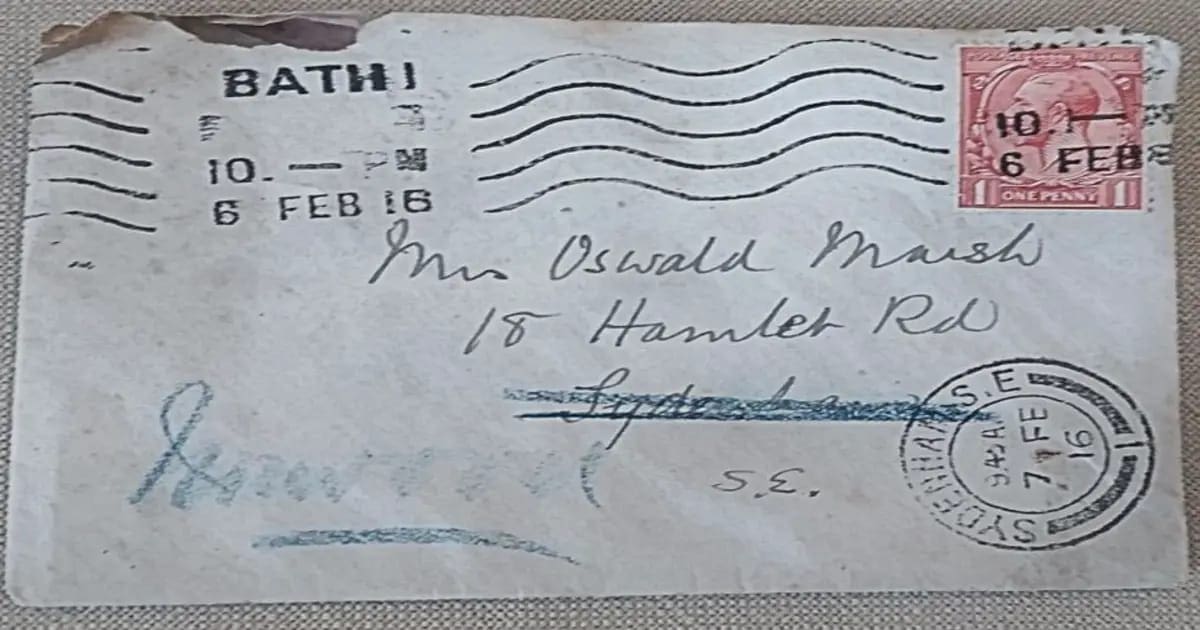 BATH 1
10. — PM
6 FEB 16
10. —
6 FEB
1 ONE PENNY 1
Mrs Oswald Marsh
18 Hamlet Rd
Sydenham
S.E.
Norwood
SYDENHAM S.E. 1
9.45 A
7 FE
16